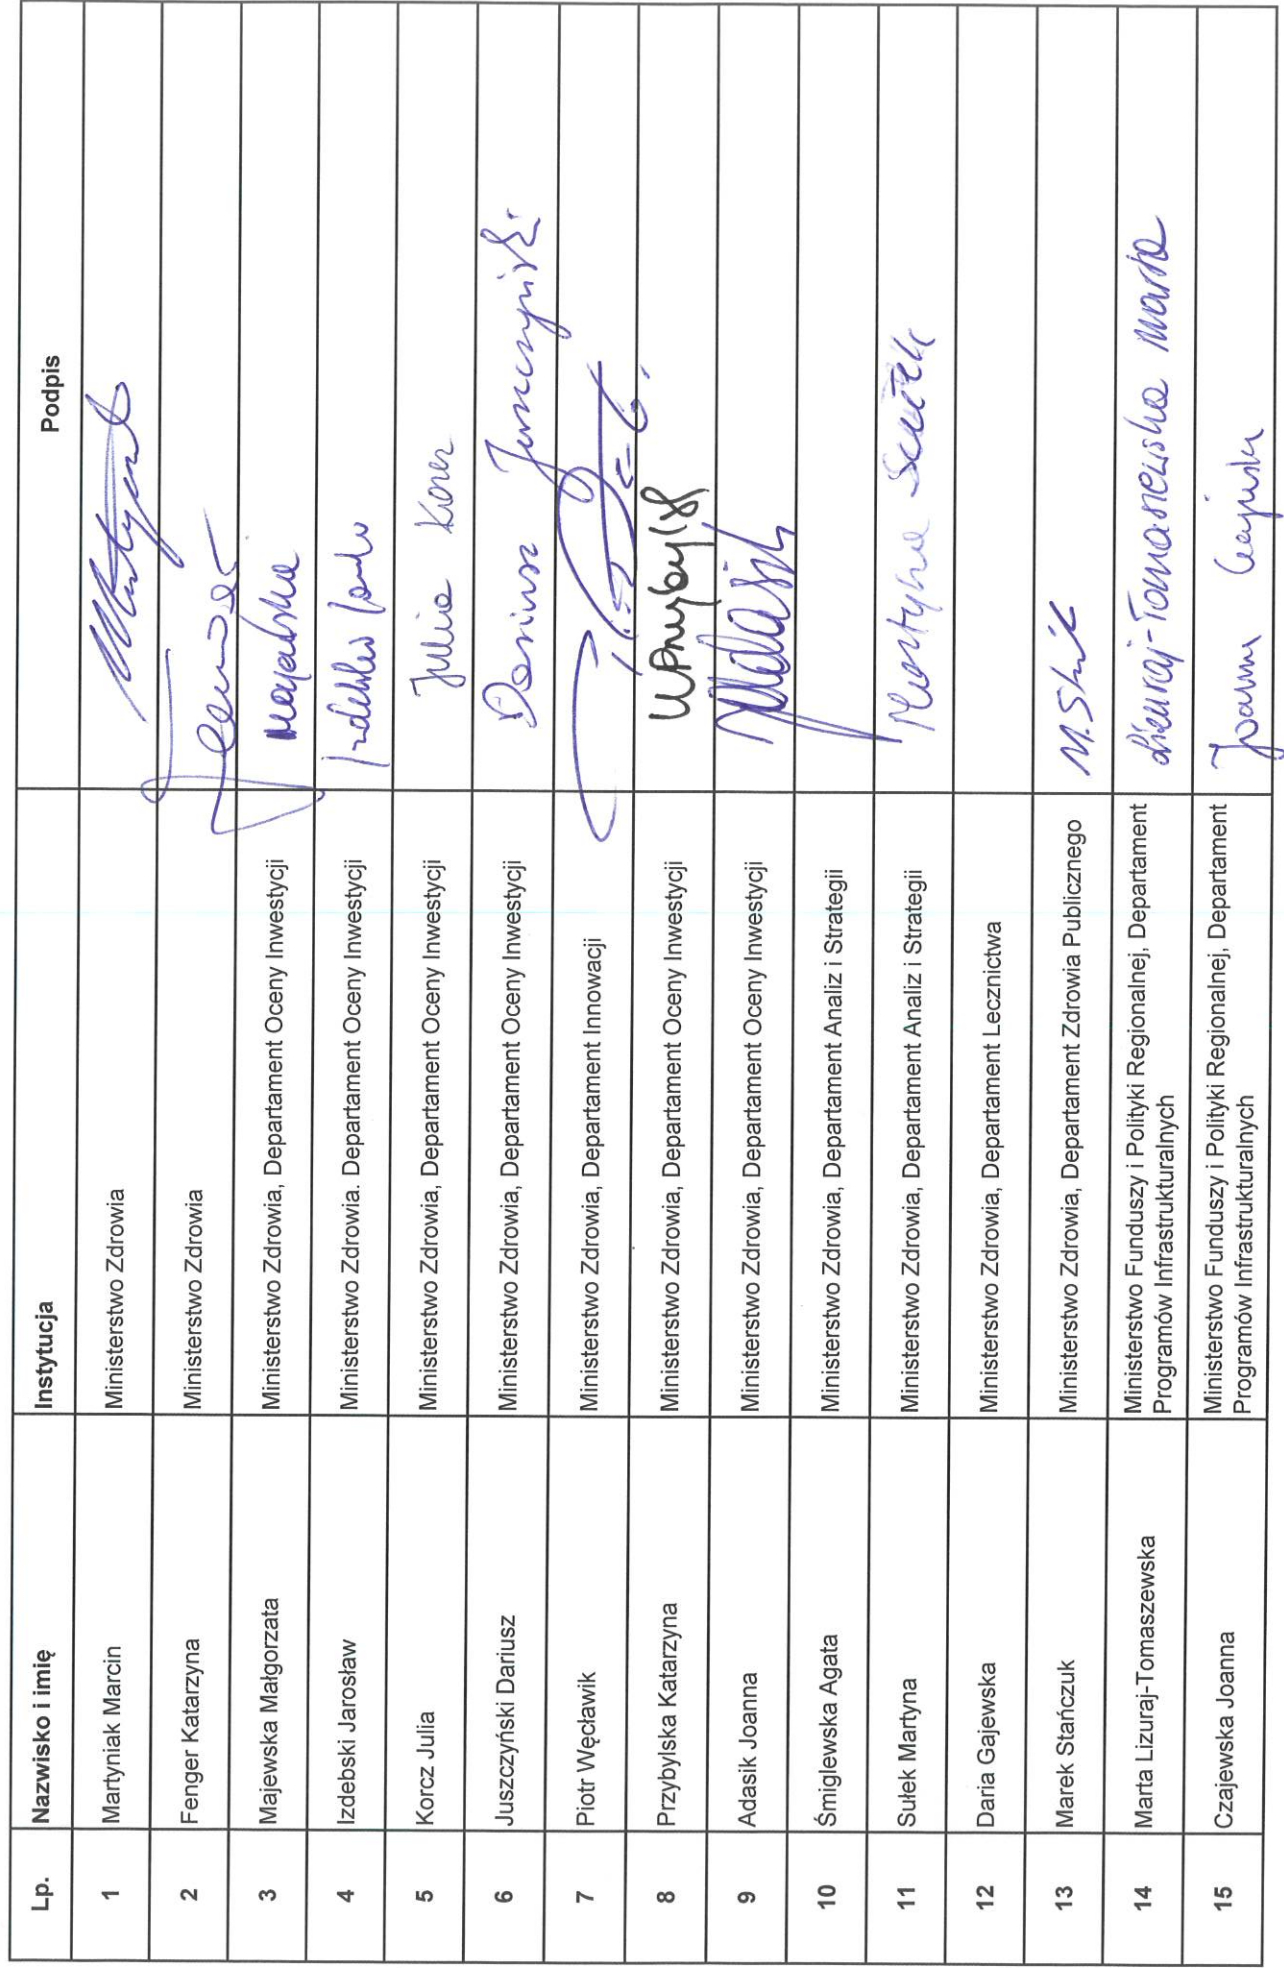 Lp. Nazwisko i imię Instytucja Podpis
1 Martyniak Marcin Ministerstwo Zdrowia
2 Fenger Katarzyna Ministerstwo Zdrowia
3 Majewska Małgorzata Ministerstwo Zdrowia, Departament Oceny Inwestycji Majewska
4 Izdebski Jarosław Ministerstwo Zdrowia. Departament Oceny Inwestycji
5 Korcz Julia Ministerstwo Zdrowia, Departament Oceny Inwestycji Julia Korcz
6 Juszczyński Dariusz Ministerstwo Zdrowia, Departament Oceny Inwestycji Dariusz Juszczyński
7 Piotr Węcławik Ministerstwo Zdrowia, Departament Innowacji
8 Przybylska Katarzyna Ministerstwo Zdrowia, Departament Oceny Inwestycji
9 Adasik Joanna Ministerstwo Zdrowia, Departament Oceny Inwestycji
10 Śmiglewska Agata Ministerstwo Zdrowia, Departament Analiz i Strategii
11 Sułek Martyna Ministerstwo Zdrowia, Departament Analiz i Strategii Martyna Sułek
12 Daria Gajewska Ministerstwo Zdrowia, Departament Lecznictwa
13 Marek Stańczuk Ministerstwo Zdrowia, Departament Zdrowia Publicznego
14 Marta Lizuraj-Tomaszewska Ministerstwo Funduszy i Polityki Regionalnej, Departament
Programów Infrastrukturalnych Lizuraj-Tomaszewska Marta
15 Czajewska Joanna Ministerstwo Funduszy i Polityki Regionalnej, Departament
Programów Infrastrukturalnych Joanna Czajewska